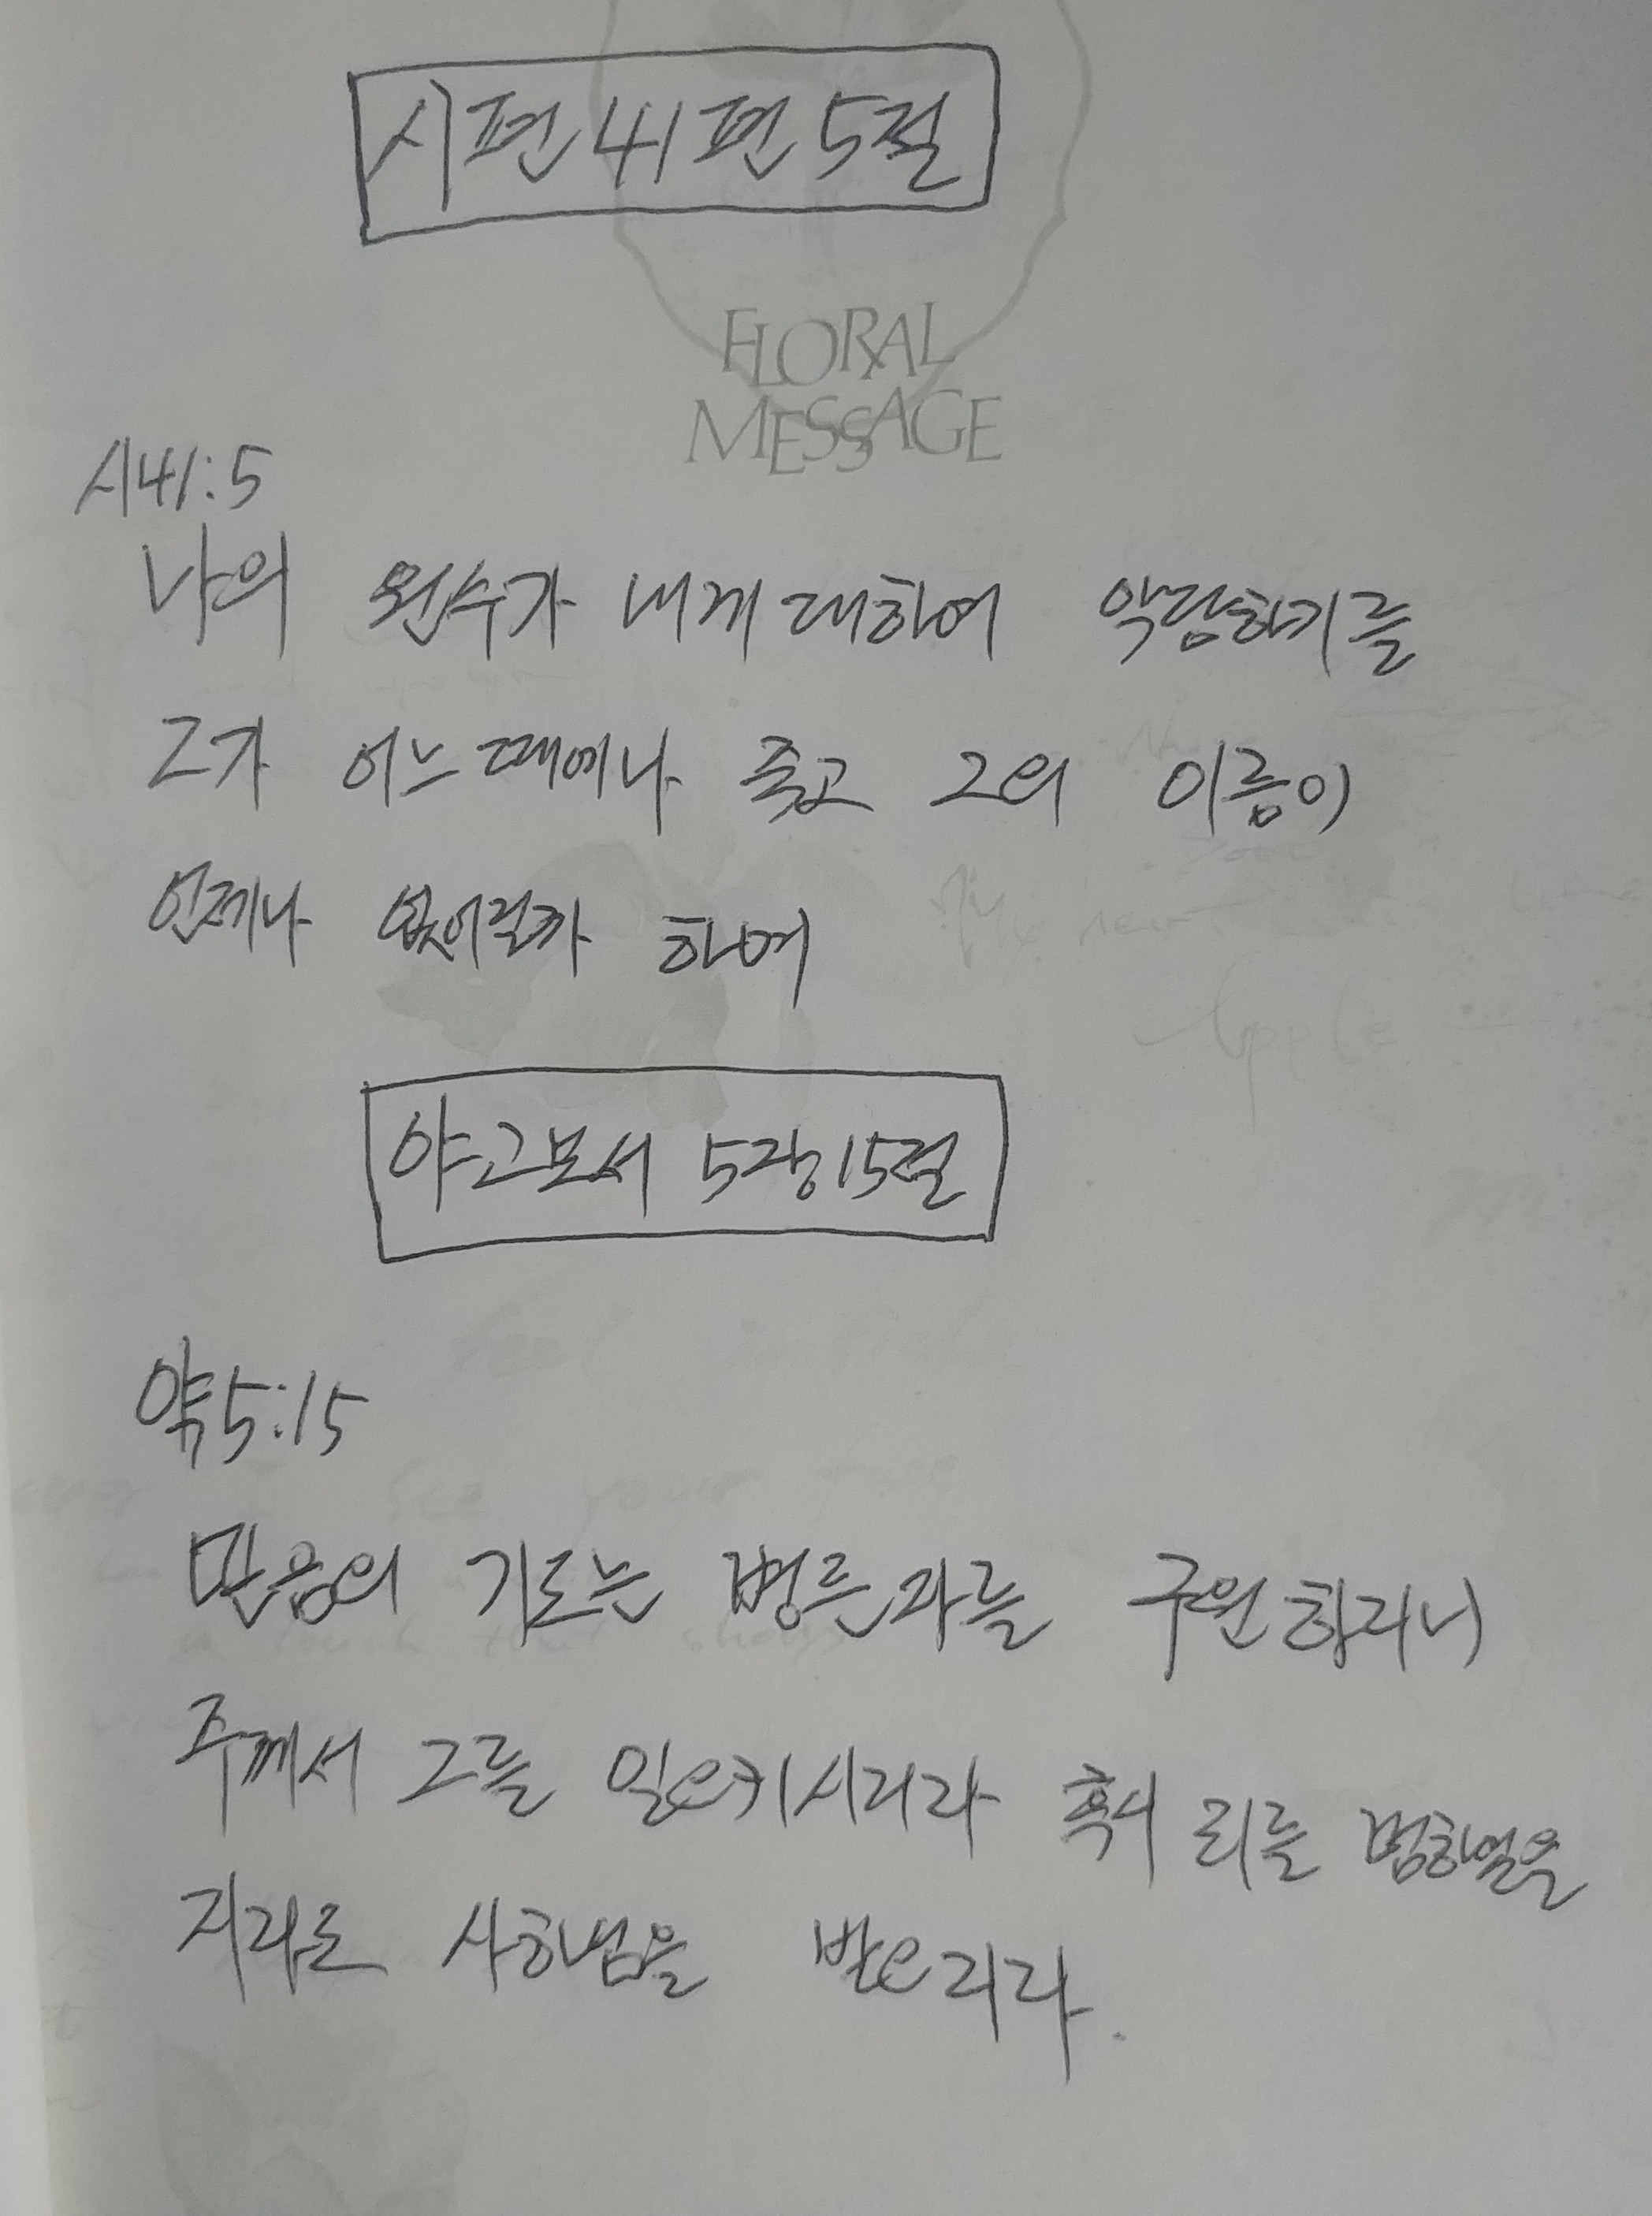 시편 41편 5절
FLORAL
MESSAGE
시41:5
나의 원수가 내게 대하여 악담하기를
그가 어느 때에나 죽고 그의 이름이
언제나 없어질까 하며
야고보서 5장15절
약5:15
믿음의 기도는 병든 자를 구원하리니
주께서 그를 일으키시리라 혹시 죄를 범하였을
지라도 사하심을 받으리라.